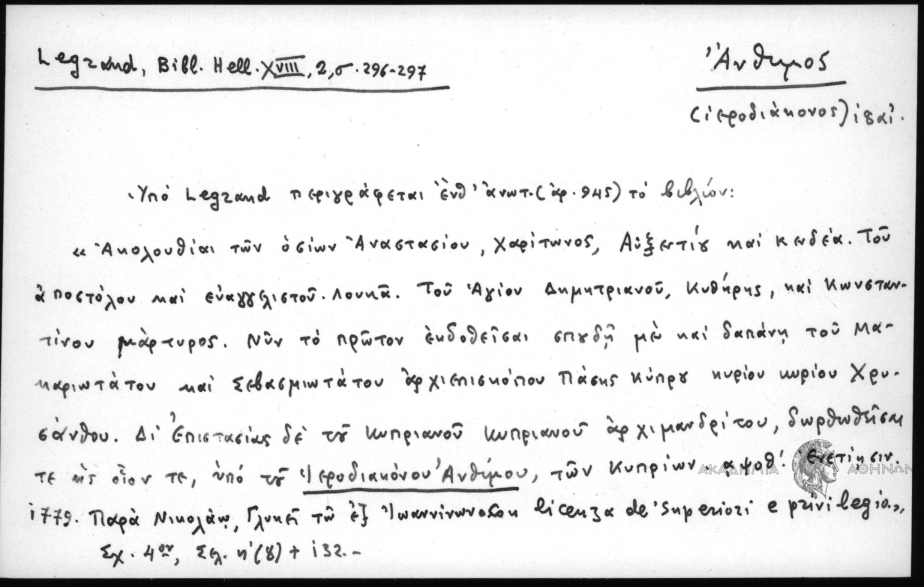 Legrand, Bibl. Hell. XVIII, 2, σ. 296-297
Ἄνθιμος
(ἱεροδιάκονος) ιηαι.
Ὑπό Legrand περιγράφεται ἔνθ' ἀνωτ. (ἀρ. 945) τό βιβλίον:
«Ἀκολουθίαι τῶν ὁσίων Ἀναστασίου, Χαρίτωνος, Αὐξεντίου καί Κενδέα. Τοῦ
ἀποστόλου καί εὐαγγελιστοῦ Λουκᾶ. Τοῦ Ἁγίου Δημητριανοῦ, Κυθήρης, καί Κωνσταν-
τίνου μάρτυρος. Νῦν τό πρῶτον ἐκδοθεῖσαι σπυδῇ μὲ καί δαπάνῃ τοῦ Μα-
καριωτάτου καί Σεβασμιωτάτου ἀρχιεπισκόπου Πάσης Κύπρυ κυρίου κυρίου Χρυ-
σάνθου. Δι' Ἐπιστασίας δέ τῦ Κυπριανοῦ Κυπριανοῦ ἀρχιμανδρίτου, διορθωθεῖσαι
τε ὡς οἷόν τε, ὑπό τῦ Ἱεροδιακόνου Ἀνθίμου, τῶν Κυπρίων αψοθ' Ἐνετίησιν.
1779. Παρὰ Νικολάῳ Γλυκεῖ τῷ ἐξ Ἰωαννίνων con licenza de' Superiori e privilegio»,
Σχ. 4ον, Σελ. η' (8) + 132.-
ΑΚΑΔΗΜΙΑ ΑΘΗΝΩΝ